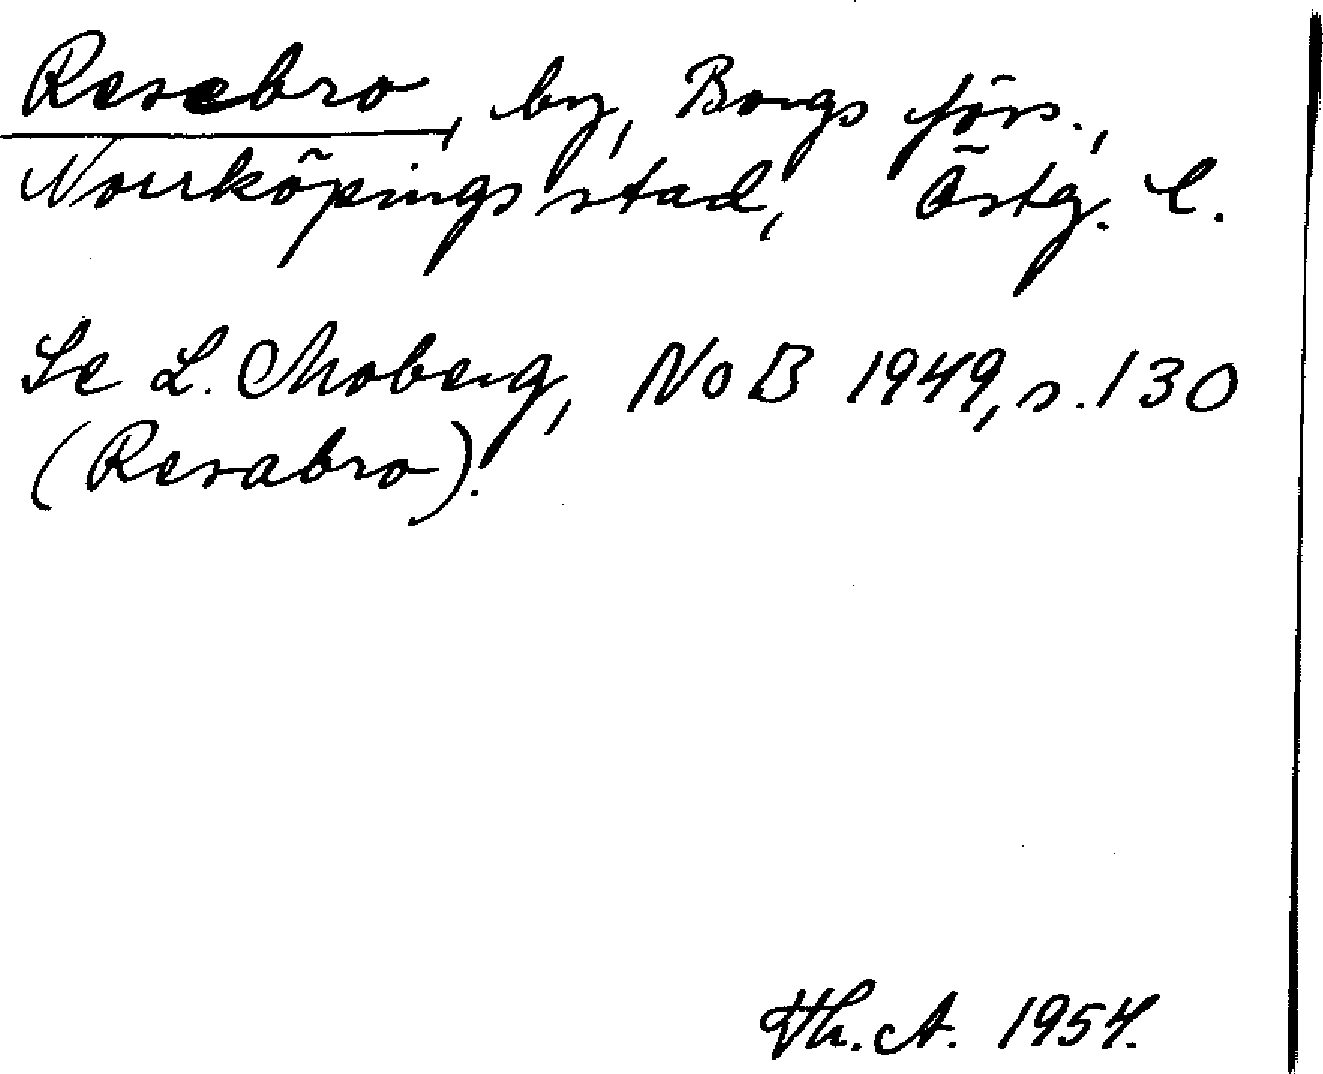 Resebro, by, Borgs förs.,
Norrköpings stad, Östg. l.
Se L. Moberg, NoB 1949, s. 130
(Resabro).
Th. A. 1954.